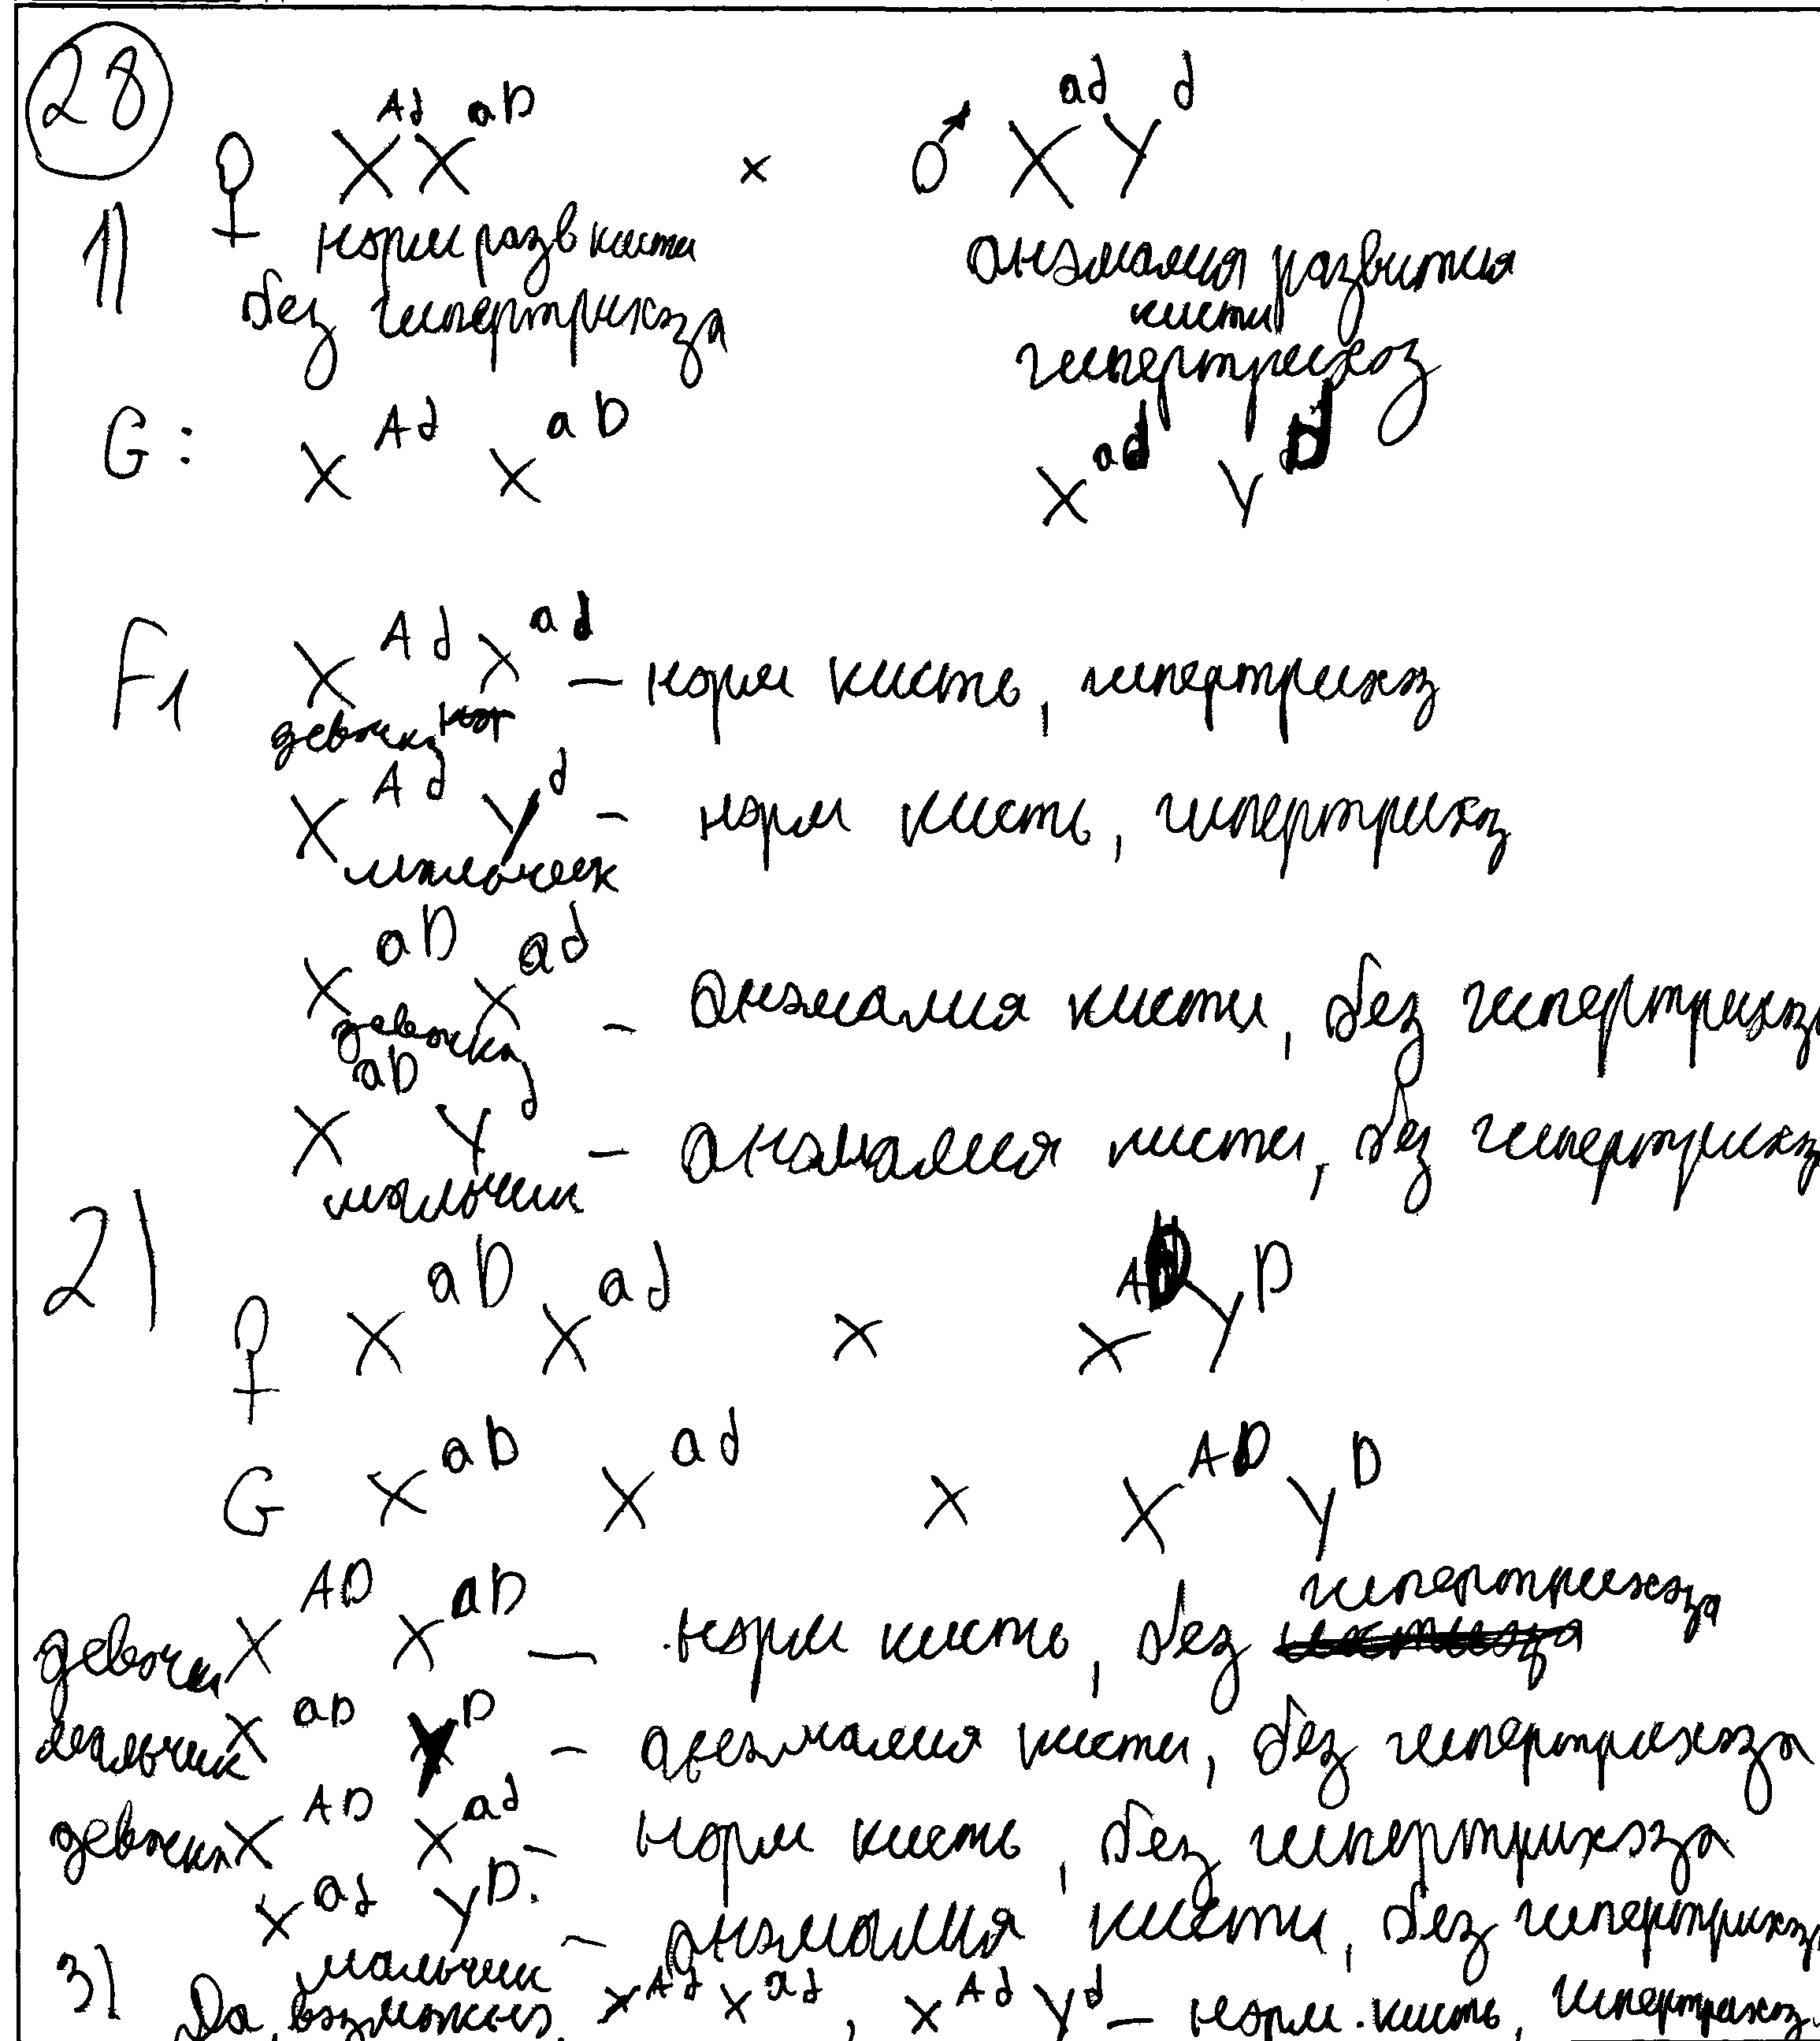 28
1) ♀ X^Ad X^aD × ♂ X^ad Y^d
норм разв кисти аномалия развития
кисти
без гипертрихоза гипертрихоз
G: X^Ad X^aD X^ad Y^d
F1 X^Ad X^ad — норм кисть, гипертрихоз
девочка
X^Ad Y^d — норм кисть, гипертрихоз
мальчик
X^aD X^ad — аномалия кисти, без гипертрихоза
девочка
X^aD Y^d — аномалия кисти, без гипертрихоза
мальчик
2) ♀ X^aD X^ad × X^AD Y^D
G X^aD X^ad × X^AD Y^D
гипертрихоза
девочка X^AD X^aD — норм кисть, без
мальчик X^aD Y^D — аномалия кисти, без гипертрихоза
девочка X^AD X^ad — норм кисть, без гипертрихоза
X^ad Y^D. — аномалия кисти, без гипертрихоза
мальчик
3) Да, возможно, X^Ad X^ad, X^Ad Y^d — норм. кисть, гипертрихоз.